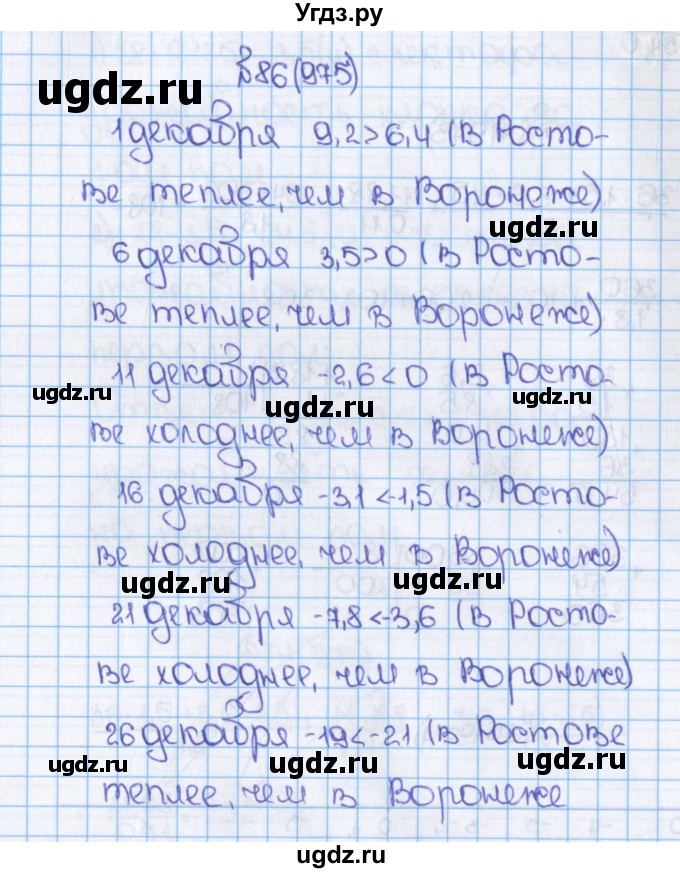 Угдз.ру
№86(975)
ugdz.ru
1 декабря 9,2>6,4 (в Росто-
ве теплее, чем в Воронеже)
ugdz.ru
6 декабря 3,5>0 (в Росто-
ве теплее, чем в Воронеже)
11 декабря -2,6<0 (в Росто-
ugdz.ru
ugdz.ru
ugdz.ru
ве холоднее, чем в Воронеже)
16 декабря -3,1<-1,5 (в Росто-
ве холоднее, чем в Воронеже)
ugdz.ru
ugdz.ru
21 декабря -7,8<-3,6 (в Росто-
ве холоднее, чем в Воронеже)
26 декабря -19<-21 (в Ростове
ugdz.ru
ugdz.ru
ugdz.ru
теплее, чем в Воронеже
ugdz.ru